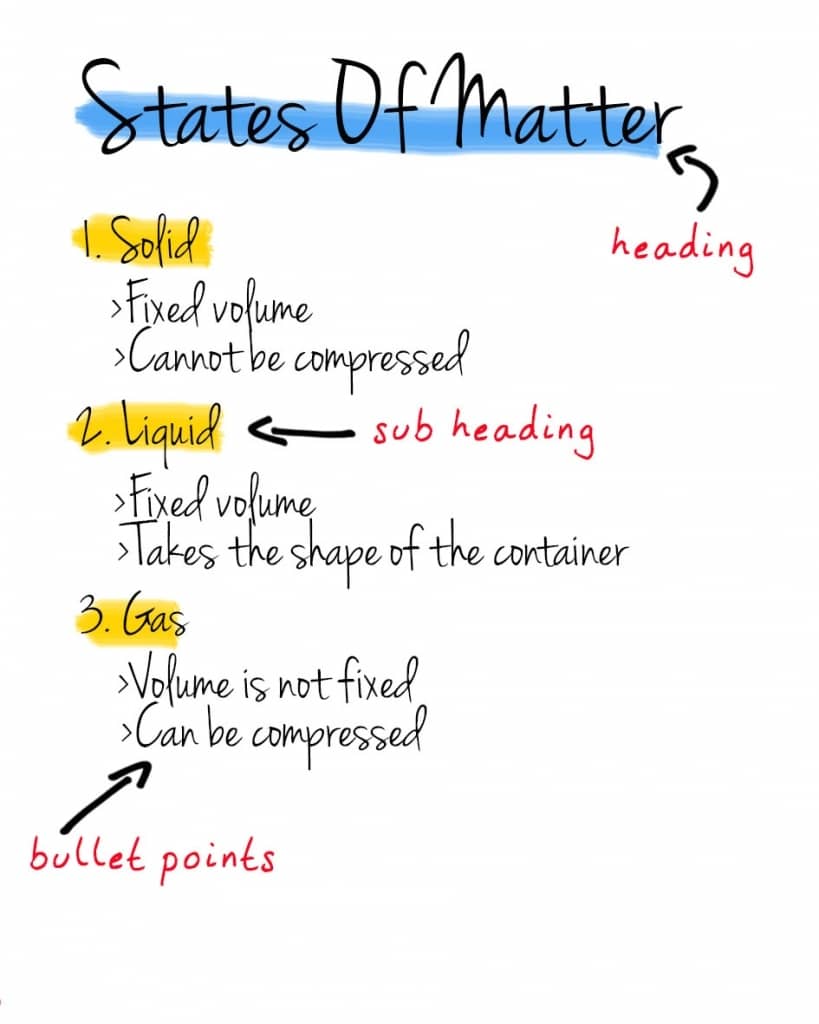 States Of Matter
heading
1. Solid
>Fixed volume
>Cannot be compressed
2. Liquid
sub heading
>Fixed volume
>Takes the shape of the container
3. Gas
>Volume is not fixed
>Can be compressed
bullet points